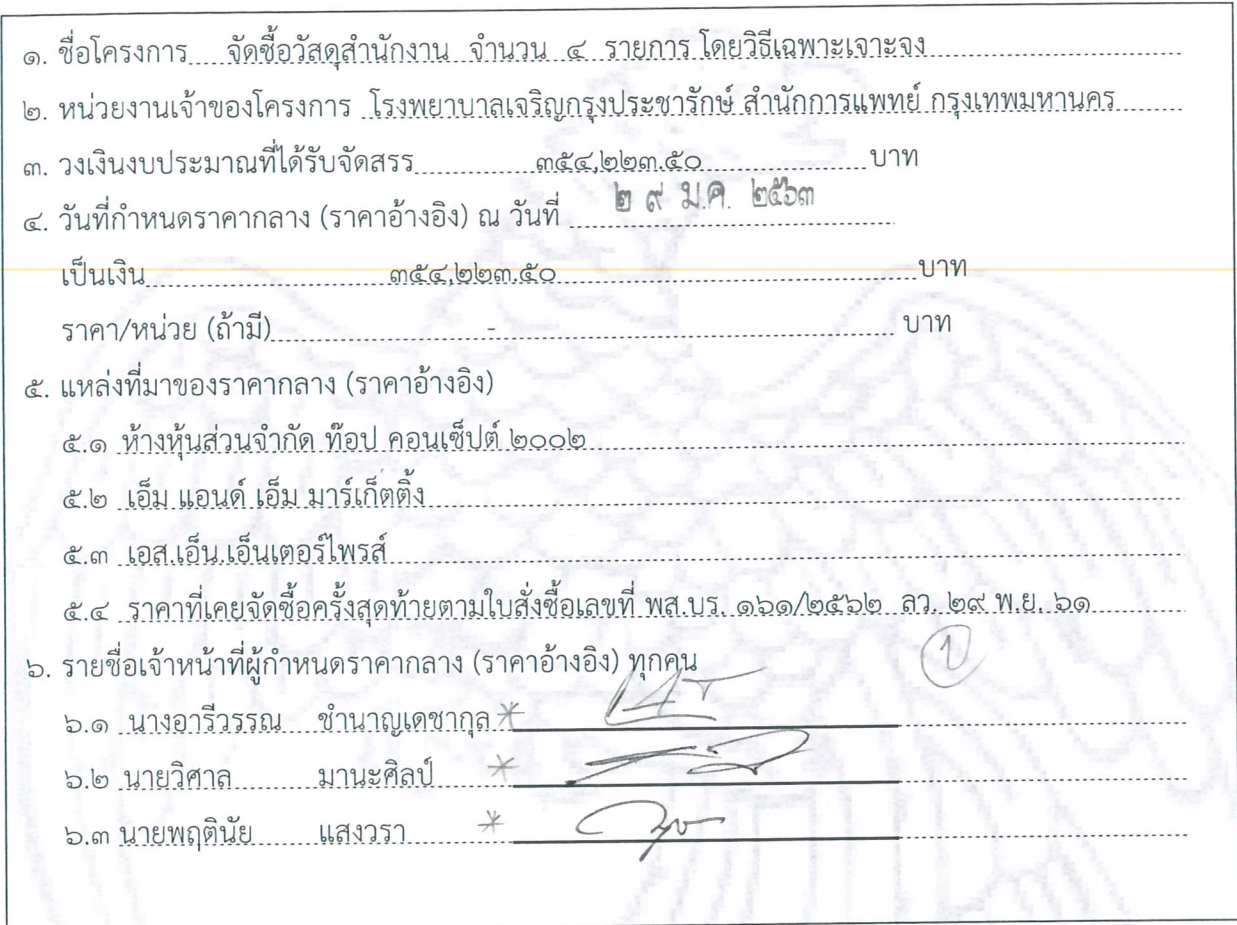 ๑. ชื่อโครงการ จัดซื้อวัสดุสำนักงาน จำนวน ๔ รายการ โดยวิธีเฉพาะเจาะจง
๒. หน่วยงานเจ้าของโครงการ โรงพยาบาลเจริญกรุงประชารักษ์ สำนักการแพทย์ กรุงเทพมหานคร
๓. วงเงินงบประมาณที่ได้รับจัดสรร ๓๕๔,๒๒๓.๕๐ บาท
๔. วันที่กำหนดราคากลาง (ราคาอ้างอิง) ณ วันที่ ๒ ๙ ม.ค. ๒๕๖๓
เป็นเงิน ๓๕๔,๒๒๓.๕๐ บาท
ราคา/หน่วย (ถ้ามี) - บาท
๕. แหล่งที่มาของราคากลาง (ราคาอ้างอิง)
๕.๑ ห้างหุ้นส่วนจำกัด ท๊อป คอนเซ็ปต์ ๒๐๐๒
๕.๒ เอ็ม แอนด์ เอ็ม มาร์เก็ตติ้ง
๕.๓ เอส.เอ็น.เอ็นเตอร์ไพรส์
๕.๔ ราคาที่เคยจัดซื้อครั้งสุดท้ายตามใบสั่งซื้อเลขที่ พส.บร. ๑๖๑/๒๕๖๒ ลว. ๒๙ พ.ย. ๖๑
๖. รายชื่อเจ้าหน้าที่ผู้กำหนดราคากลาง (ราคาอ้างอิง) ทุกคน
๖.๑ นางอารีวรรณ ชำนาญเดชากุล
๖.๒ นายวิศาล มานะศิลป์
๖.๓ นายพฤตินัย แสงวรา